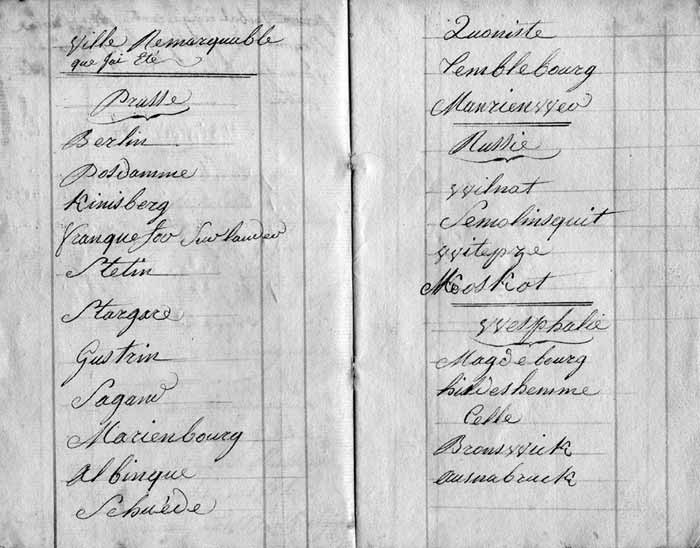 Ville Remarquable
que Jai Eté
Prusse
Berlin
Posdamme
Kinisberg
franquefor Surlauder
Stetin
Stargare
Gustrin
Sagand
Marienbourg
Albinque
Schuéde
Quoniste
Temblebourg
Maurienwer
Russie
Wilnat
Semolinsquit
Witepze
Moskot
Westphalie
Magdebourg
hildeshemme
Celle
Bronswick
Ausnabruck